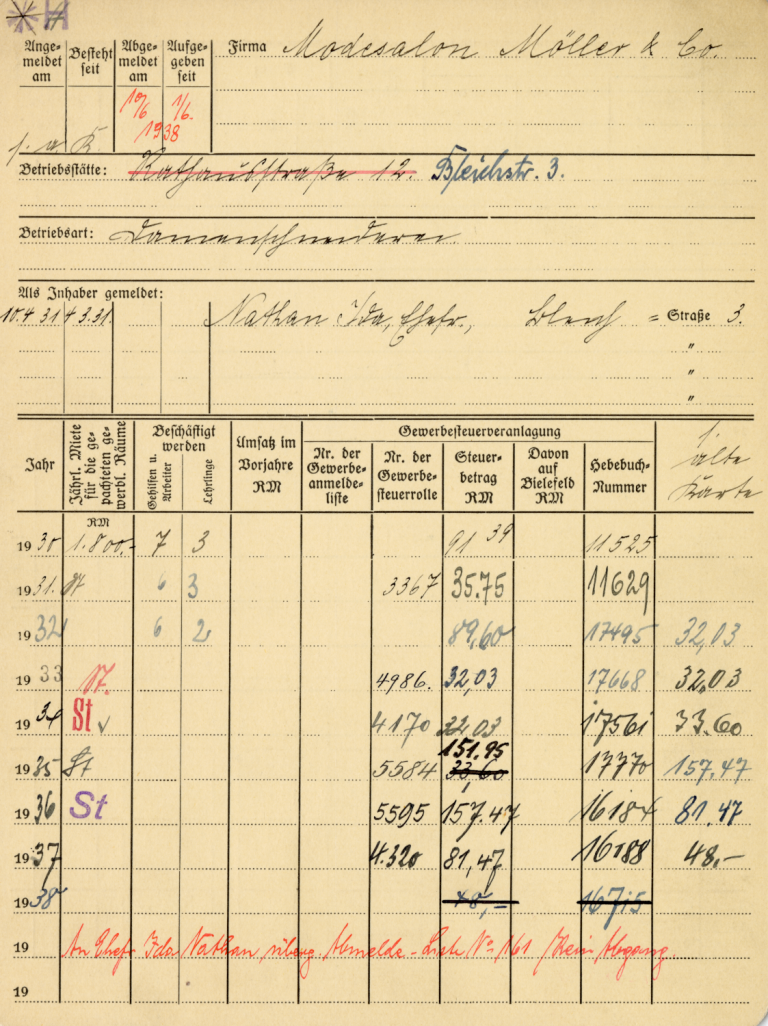 H
Ange- meldet am
Besteht seit
Abge- meldet am
Aufge- geben seit
Firma Modesalon Möller & Co.
10/6 1/6.
1938
Betriebsstätte: Rathausstraße 12. Bleichstr. 3.
Betriebsart: Damenschneiderei
Als Inhaber gemeldet:
10.4 31 4 3.31. Nathan Ida, Ehefr., Bleich = Straße 3.
"
"
"
Jahr
Jährl. Miete für die ge- pachteten ge- werbl. Räume
Beschäftigt werden
Gehilfen u. Arbeiter
Lehrlinge
Umsatz im Vorjahre RM
Gewerbesteuerveranlagung
Nr. der Gewerbe- anmelde- liste
Nr. der Gewerbe- steuerrolle
Steuer- betrag RM
Davon auf Bielefeld RM
Hebebuch- Nummer
alte Karte
RM
1930 1.800.- 7 3 91 39 11525
1931. 6 3 3367 35.75 11629
1932 6 2 89,60 17495 32,03
1933 St. 4986. 32,03 17668 32,03
1934 St 4170 32,03 17561 33.60
151.95
1935 St 5584 33,60 17770 157.47
1936 St 5595 157.47 16184 81.47
1937 4.320 81,47 16188 48,-
1938 48,- 16715
19 An Ehefr. Ida Nathan überg. Abmelde-Liste No 161 / Kein Abgang.
19